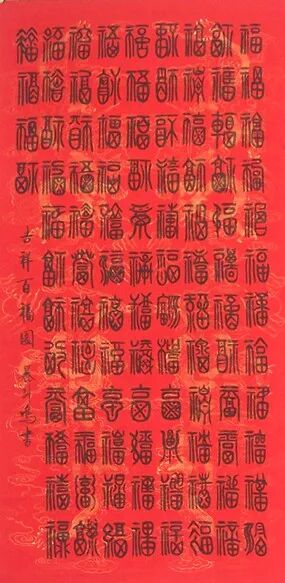 福福福福福福福福福福福福
福福福福福福福福福福福福
福福福福福福福福福福福福
福福福福福福福福福福福福
福福福福福福福福福福福福
福福福福福福福福福福福福
福福福福福福福福福福福福
福福福福福福福福福福福福
福福福福
吉祥百福圖 書